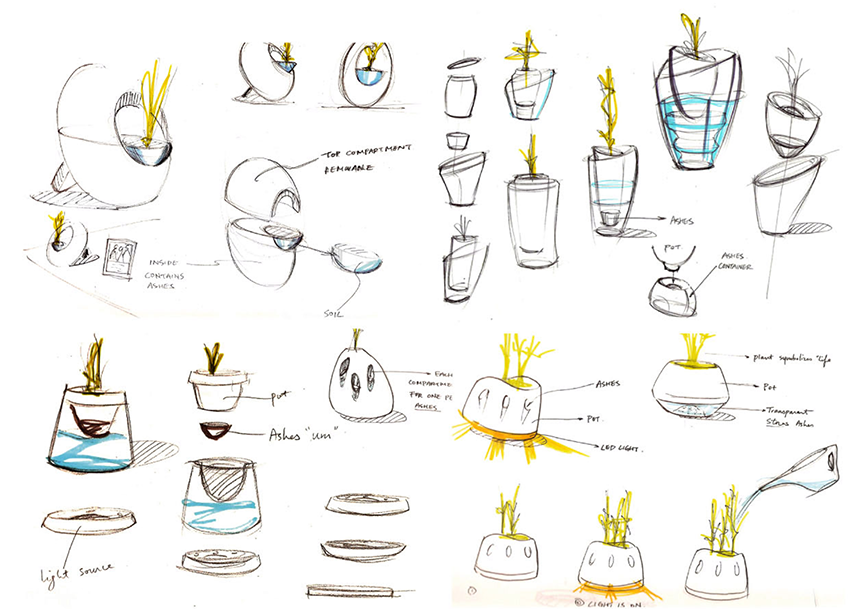 TOP COMPARTMENT
REMOVABLE
INSIDE
CONTAINS
ASHES
SOIL
ASHES
POT.
ASHES
CONTAINER
pot
Ashes "urn"
light source
EACH
COMPARTME
FOR ONE PE
ASHES
ASHES
POT.
LED LIGHT.
plant symbolizes "life
Pot
Transparent
Stores Ashes
① 
② LIGHT IS ON